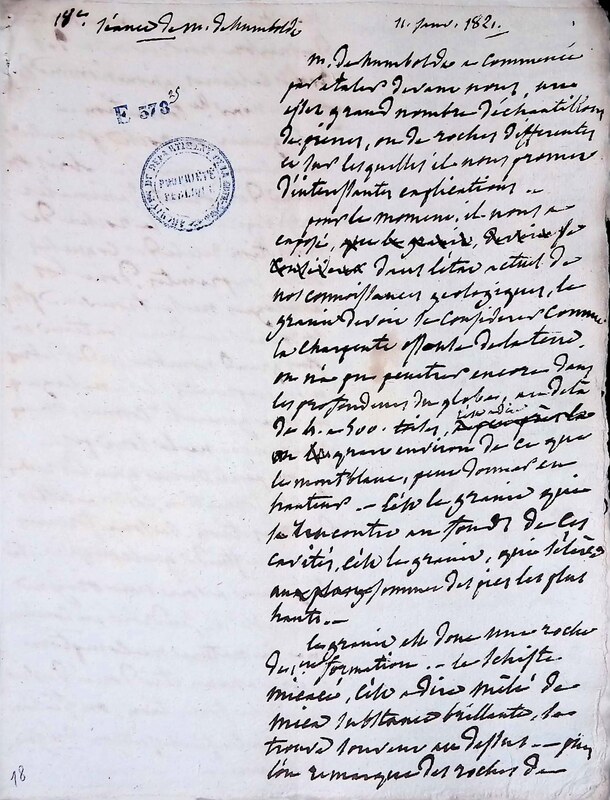 18e. séance de m. de humboldt
11. janv. 1821.
E 578 25
ARCHIVES DU DÉPARTEMENT DE LA
PROPRIÉTÉ
PUBLIQUE
m. de humboldt a commencé
par étaler devant nous, une
assez grand nombre d'échantillons
de pierres, ou de roches différentes
et sur lesquelles il nous promet
d'intéressantes explications. -
pour le moment, il nous a
exposé, que le granit,
dans l'état actuel de
nos connoissances géologiques, le
granit devoit se considérer comme
la charpente osseuse de la terre.
on n'a pu pénétrer encore dans
les profondeurs du globe, au delà
de 4. a 500. toises, c'est a dire
environ de ce que
le montblanc, peut donner en
hauteur. - C'est le granit qui
se rencontre au fonds de ces
cavités, c'est le granit, qui s'élève
aux sommets des pics les plus
hauts. -
le granit est donc une roche
de 1ere formation. - le schiste
micacé, c'est a dire mêlé de
mica substance brillante, se
trouve souvent au dessus - puis
l'on remarque des roches de
18